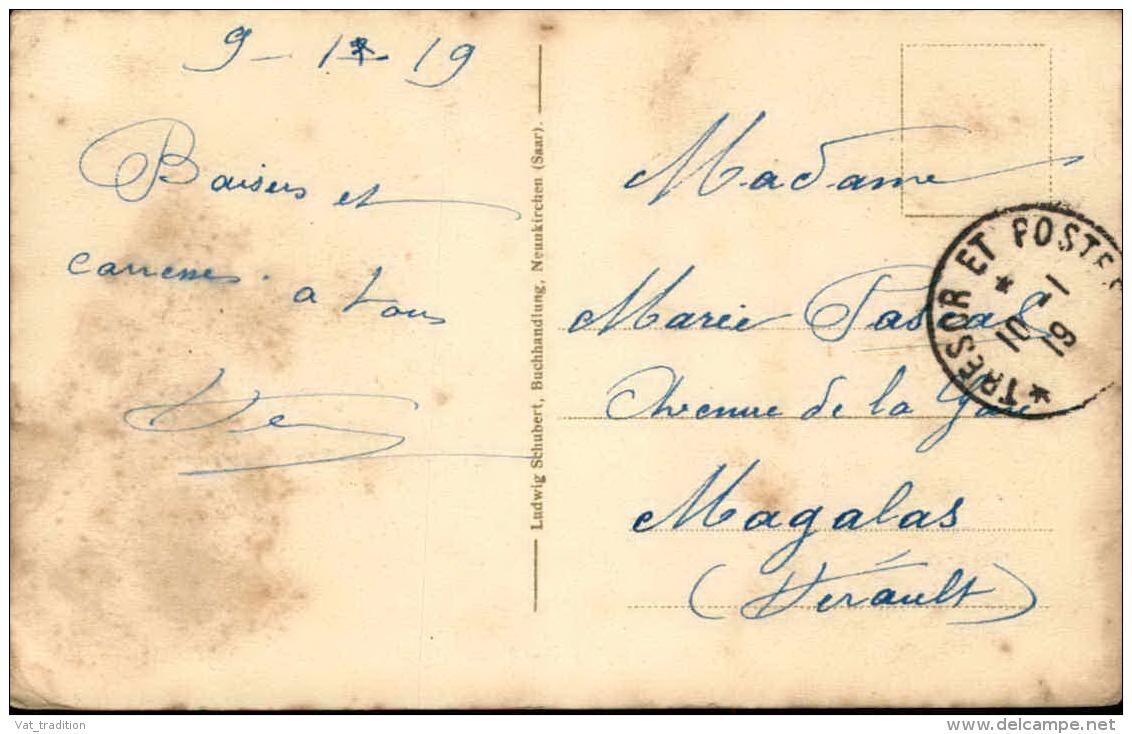 9 - 1 - 19
Baisers et
caresses. a tous
Ludwig Schubert, Buchhandlung, Neunkirchen (Saar).
Madame
Marie Pascal
Avenue de la Gare
Magalas
(Hérault)
* TRESOR ET POSTES *
* 10 - 1
19
Vat_tradition
www.delcampe.net